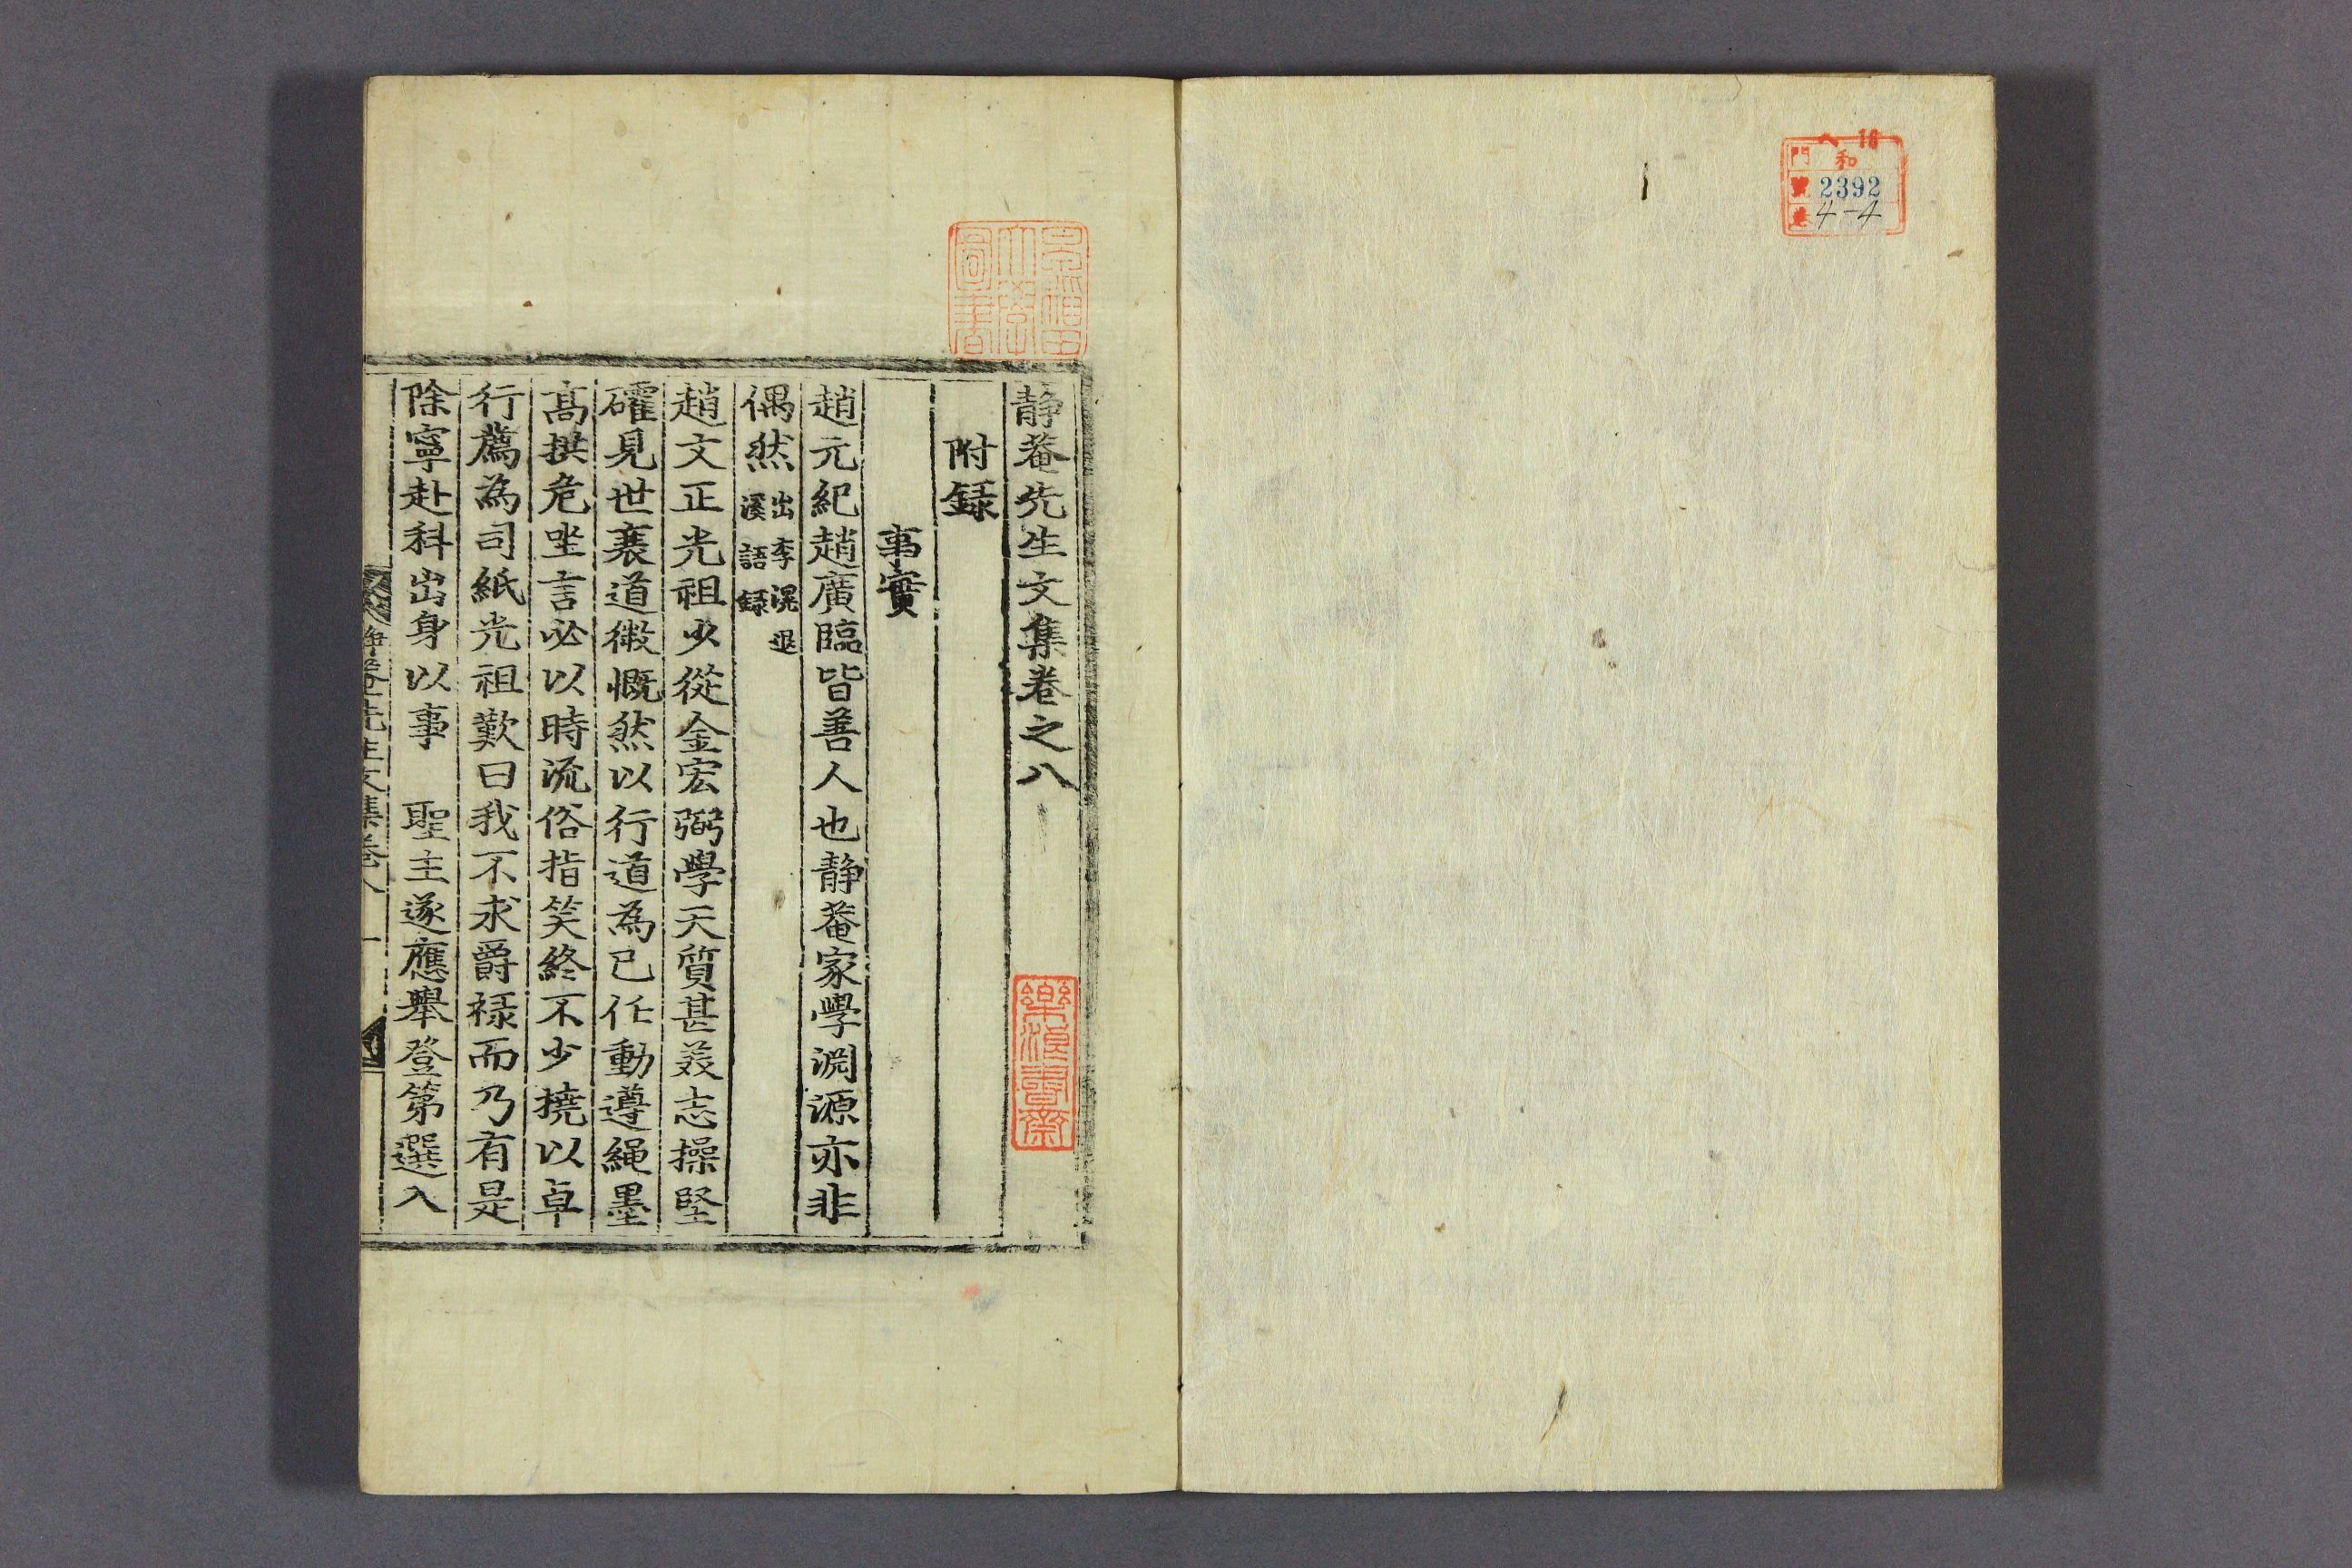 ヘ 16
門 和
號 2392
巻 4-4
早稲田
大學
圖書
静菴先生文集卷之八
樂浪書齋
附録
事實
趙元紀趙廣臨皆善人也静菴家學淵源亦非
偶然出李滉退
溪語録
趙文正光祖少從金宏弼學天質甚美志操堅
確見世衰道微慨然以行道為己任動遵繩墨
高拱危坐言必以時流俗指笑終不少撓以卓
行薦為司紙光祖歎曰我不求爵祿而乃有是
除寧赴科出身以事 聖主遂應舉登第選入
静菴先生文集卷八 一